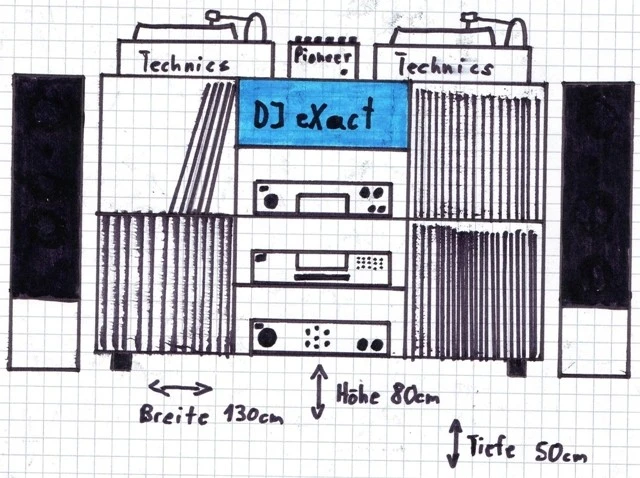 Technics
Pioneer
Technics
DJ eXact
Breite 130cm
Höhe 80cm
Tiefe 50cm